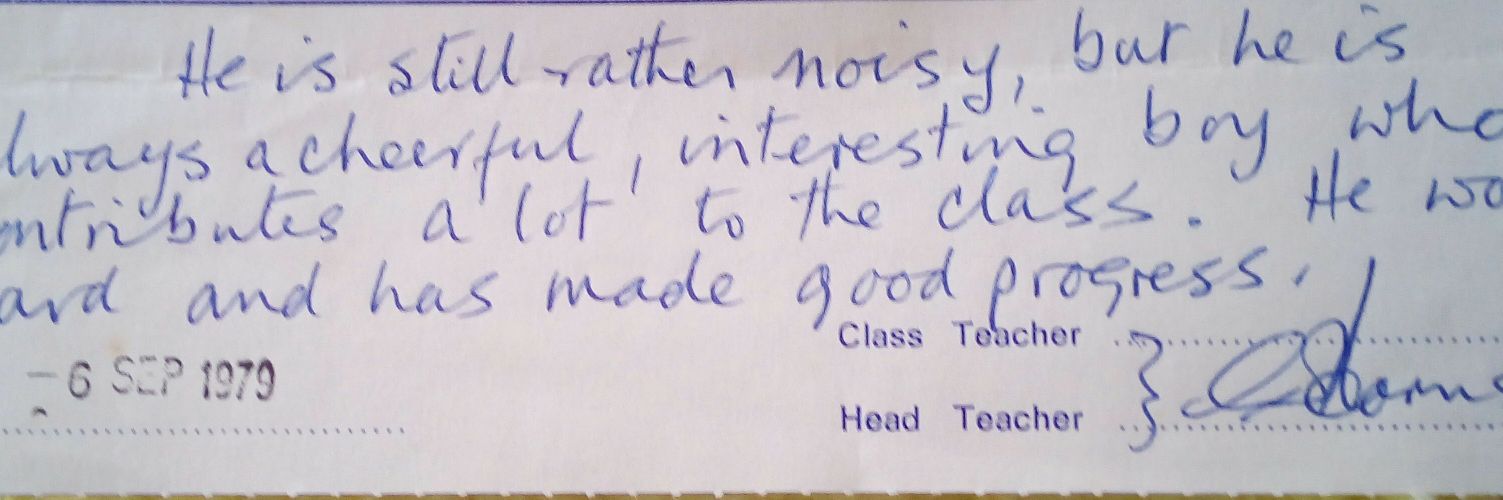 He is still rather noisy, but he is
lways a cheerful, interesting boy who
ontributes a lot to the class. He wo
ard and has made good progress.
Class Teacher
-6 SEP 1979
Head Teacher